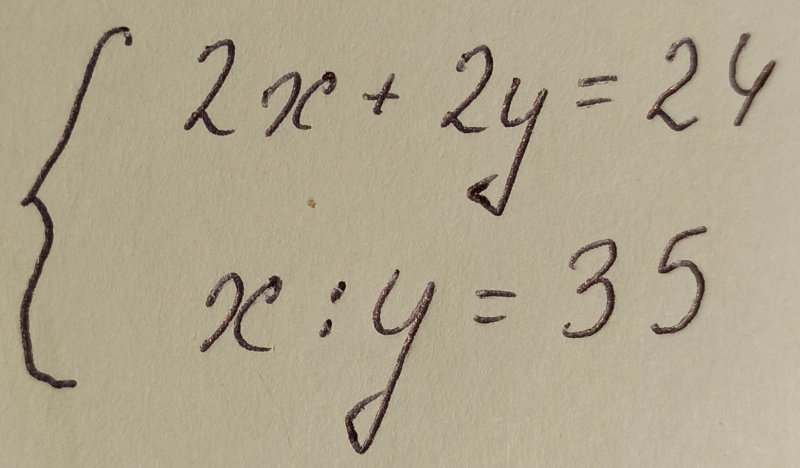 2x + 2y = 24
x : y = 35